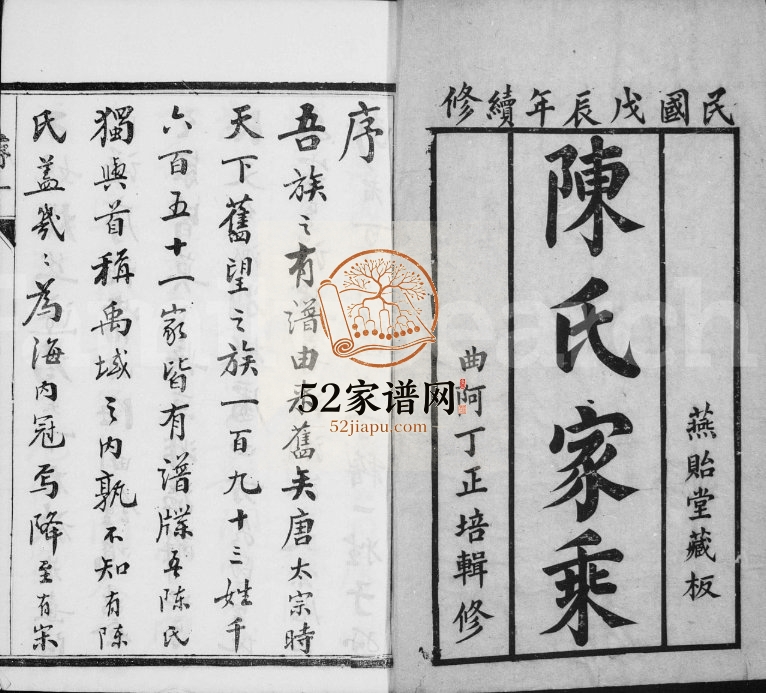 民國戊辰年續修
燕貽堂藏板
陳氏家乘
曲阿丁正培輯修
序
吾族之有譜由來舊矣唐太宗時
天下舊望之族一百九十三姓千
六百五十一家皆有譜牒吾陈氏
獨與首稱禹域之内孰不知有陈
氏盖幾〻為海内冠焉降至有宋
序一
52家谱网
52jiapu.com